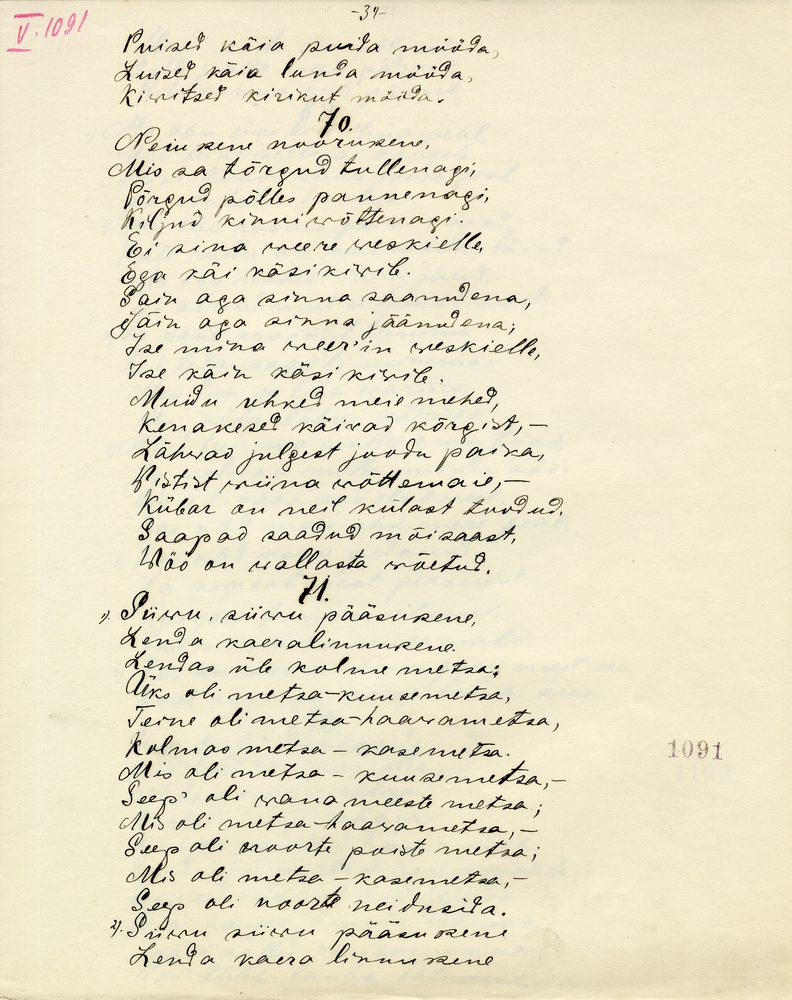 -34-
V. 1091
Puised käia puida mööda,
Luised käia lunda mööda,
Kiwitsed kirikut mööda.
70.
Neiukene noorukene,
Mis sa tõrgud tullenagi,
Põrgud põlles pannenagi,
Kiljud kinni wõttenagi.
Ei sina weere weskielle,
Ega käi käsikiwile.
Sain aga sinna saanudena,
Jäin aga sinna jäänudena;
Ise mina weer'in weskielle,
Ise käin käsikiwile.
Muidu uhked meie mehed,
Kenakesed käiwad kõrgist,—
Lähwad julgest joodu paika,
Wistist wiina wõttemaie,—
Kübar on neil külast toodud,
Saapad saadud mõisaast,
Wöö on wallasta wõetud.
71.
1). Siiwu, siiwu pääsukene,
Lenda kaeralinnukene.
Lendas üle kolme metsa:
Üks oli metsa-kuusemetsa,
Teine oli metsa-haawametsa,
Kolmas metsa – kasemetsa.
Mis oli metsa – kuusemetsa,—
Seep' oli wanameeste metsa;
Mis oli metsa-haawametsa,—
Seep oli noorte poiste metsa;
Mis oli metsa – kasemetsa,—
Seep oli noorte neidusida.
2). Siiwu siiwu pääsukene
Lenda kaera linnukene
1091